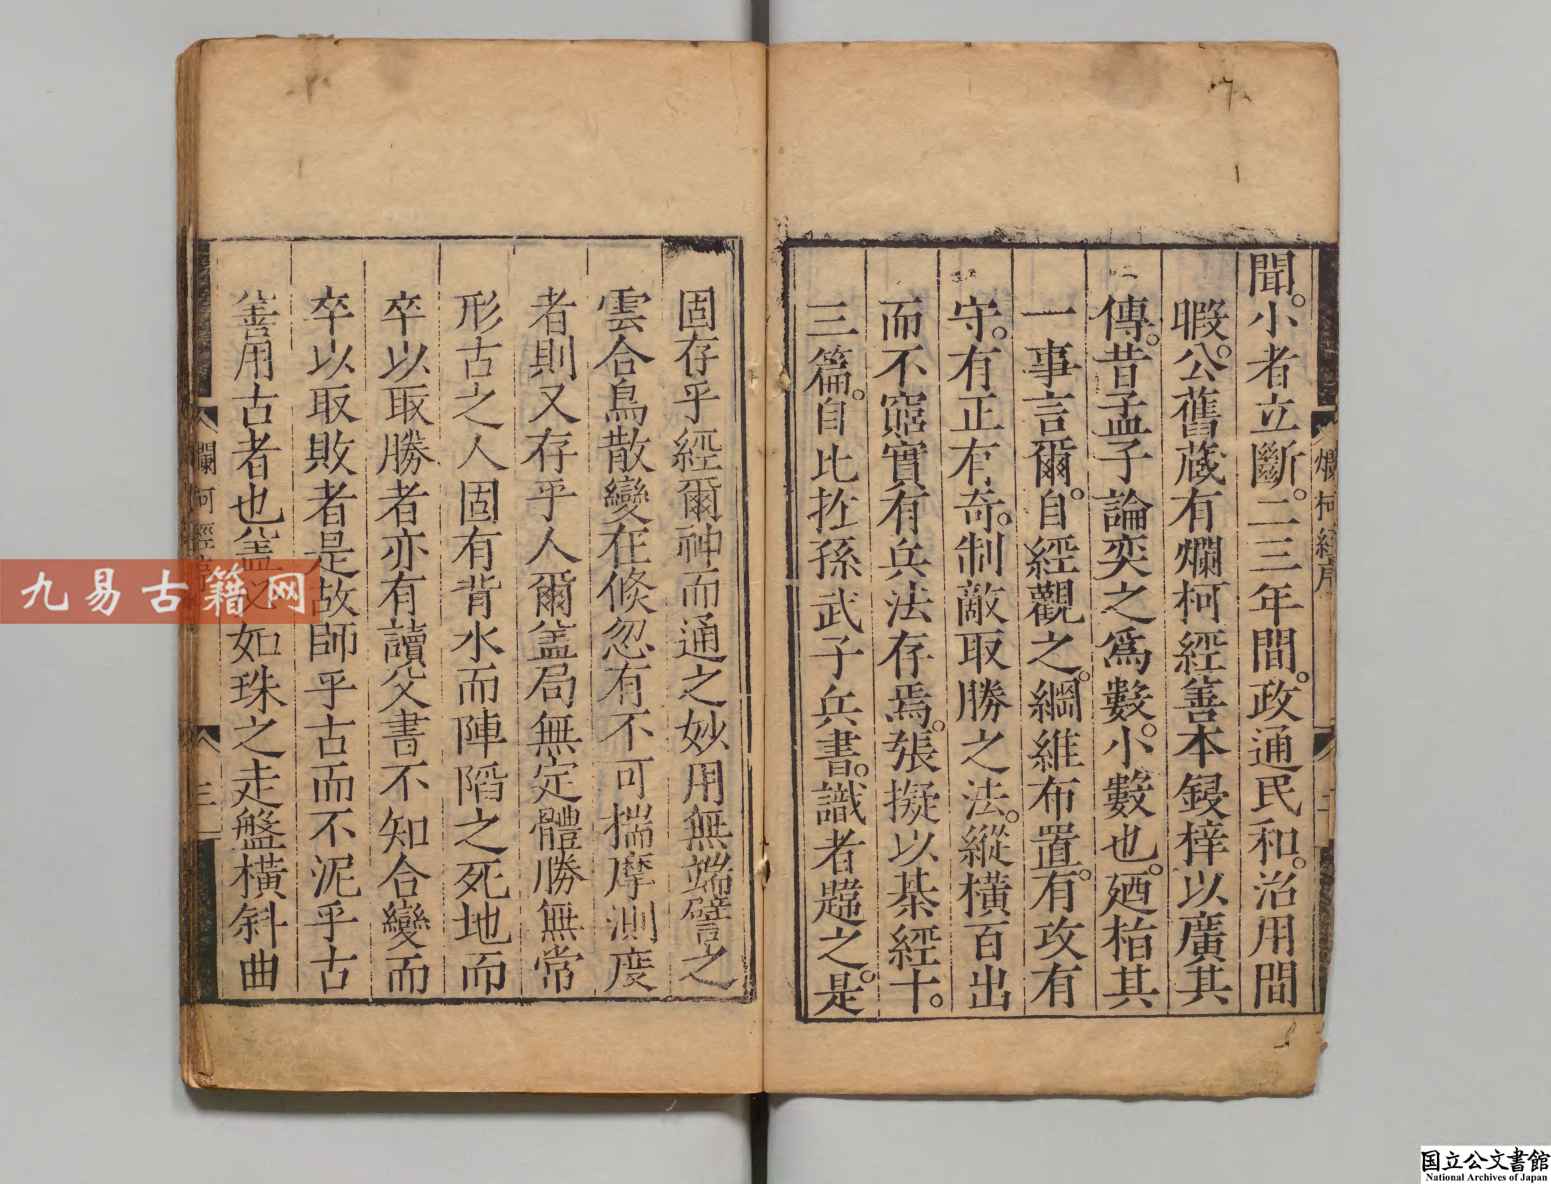 聞。小者立斷。二三年間。政通民和。治用間
暇。公舊蔵有爛柯經善本鋟梓以廣其
傳。昔孟子論奕之爲數。小數也。廼格其
一事言爾。自經觀之。綱維布置。有攻有
守。有正有奇。制敵取勝之法。縱橫百出
而不窮。實有兵法存焉。張擬以棊經十。
三篇。自比於孫武子兵書。識者韙之。是
固存乎經爾神而通之妙用無端譬之
雲合鳥散變在倐忽有不可揣摩測度
者則又存乎人爾盖局無定體勝無常
形古之人固有背水而陣陷之死地而
卒以取勝者亦有讀父書不知合變而
卒以取敗者是故師乎古而不泥乎古
善用古者也盖必如珠之走盤橫斜曲
爛柯經序
二
爛柯經
三
九易古籍网
国立公文書館
National Archives of Japan